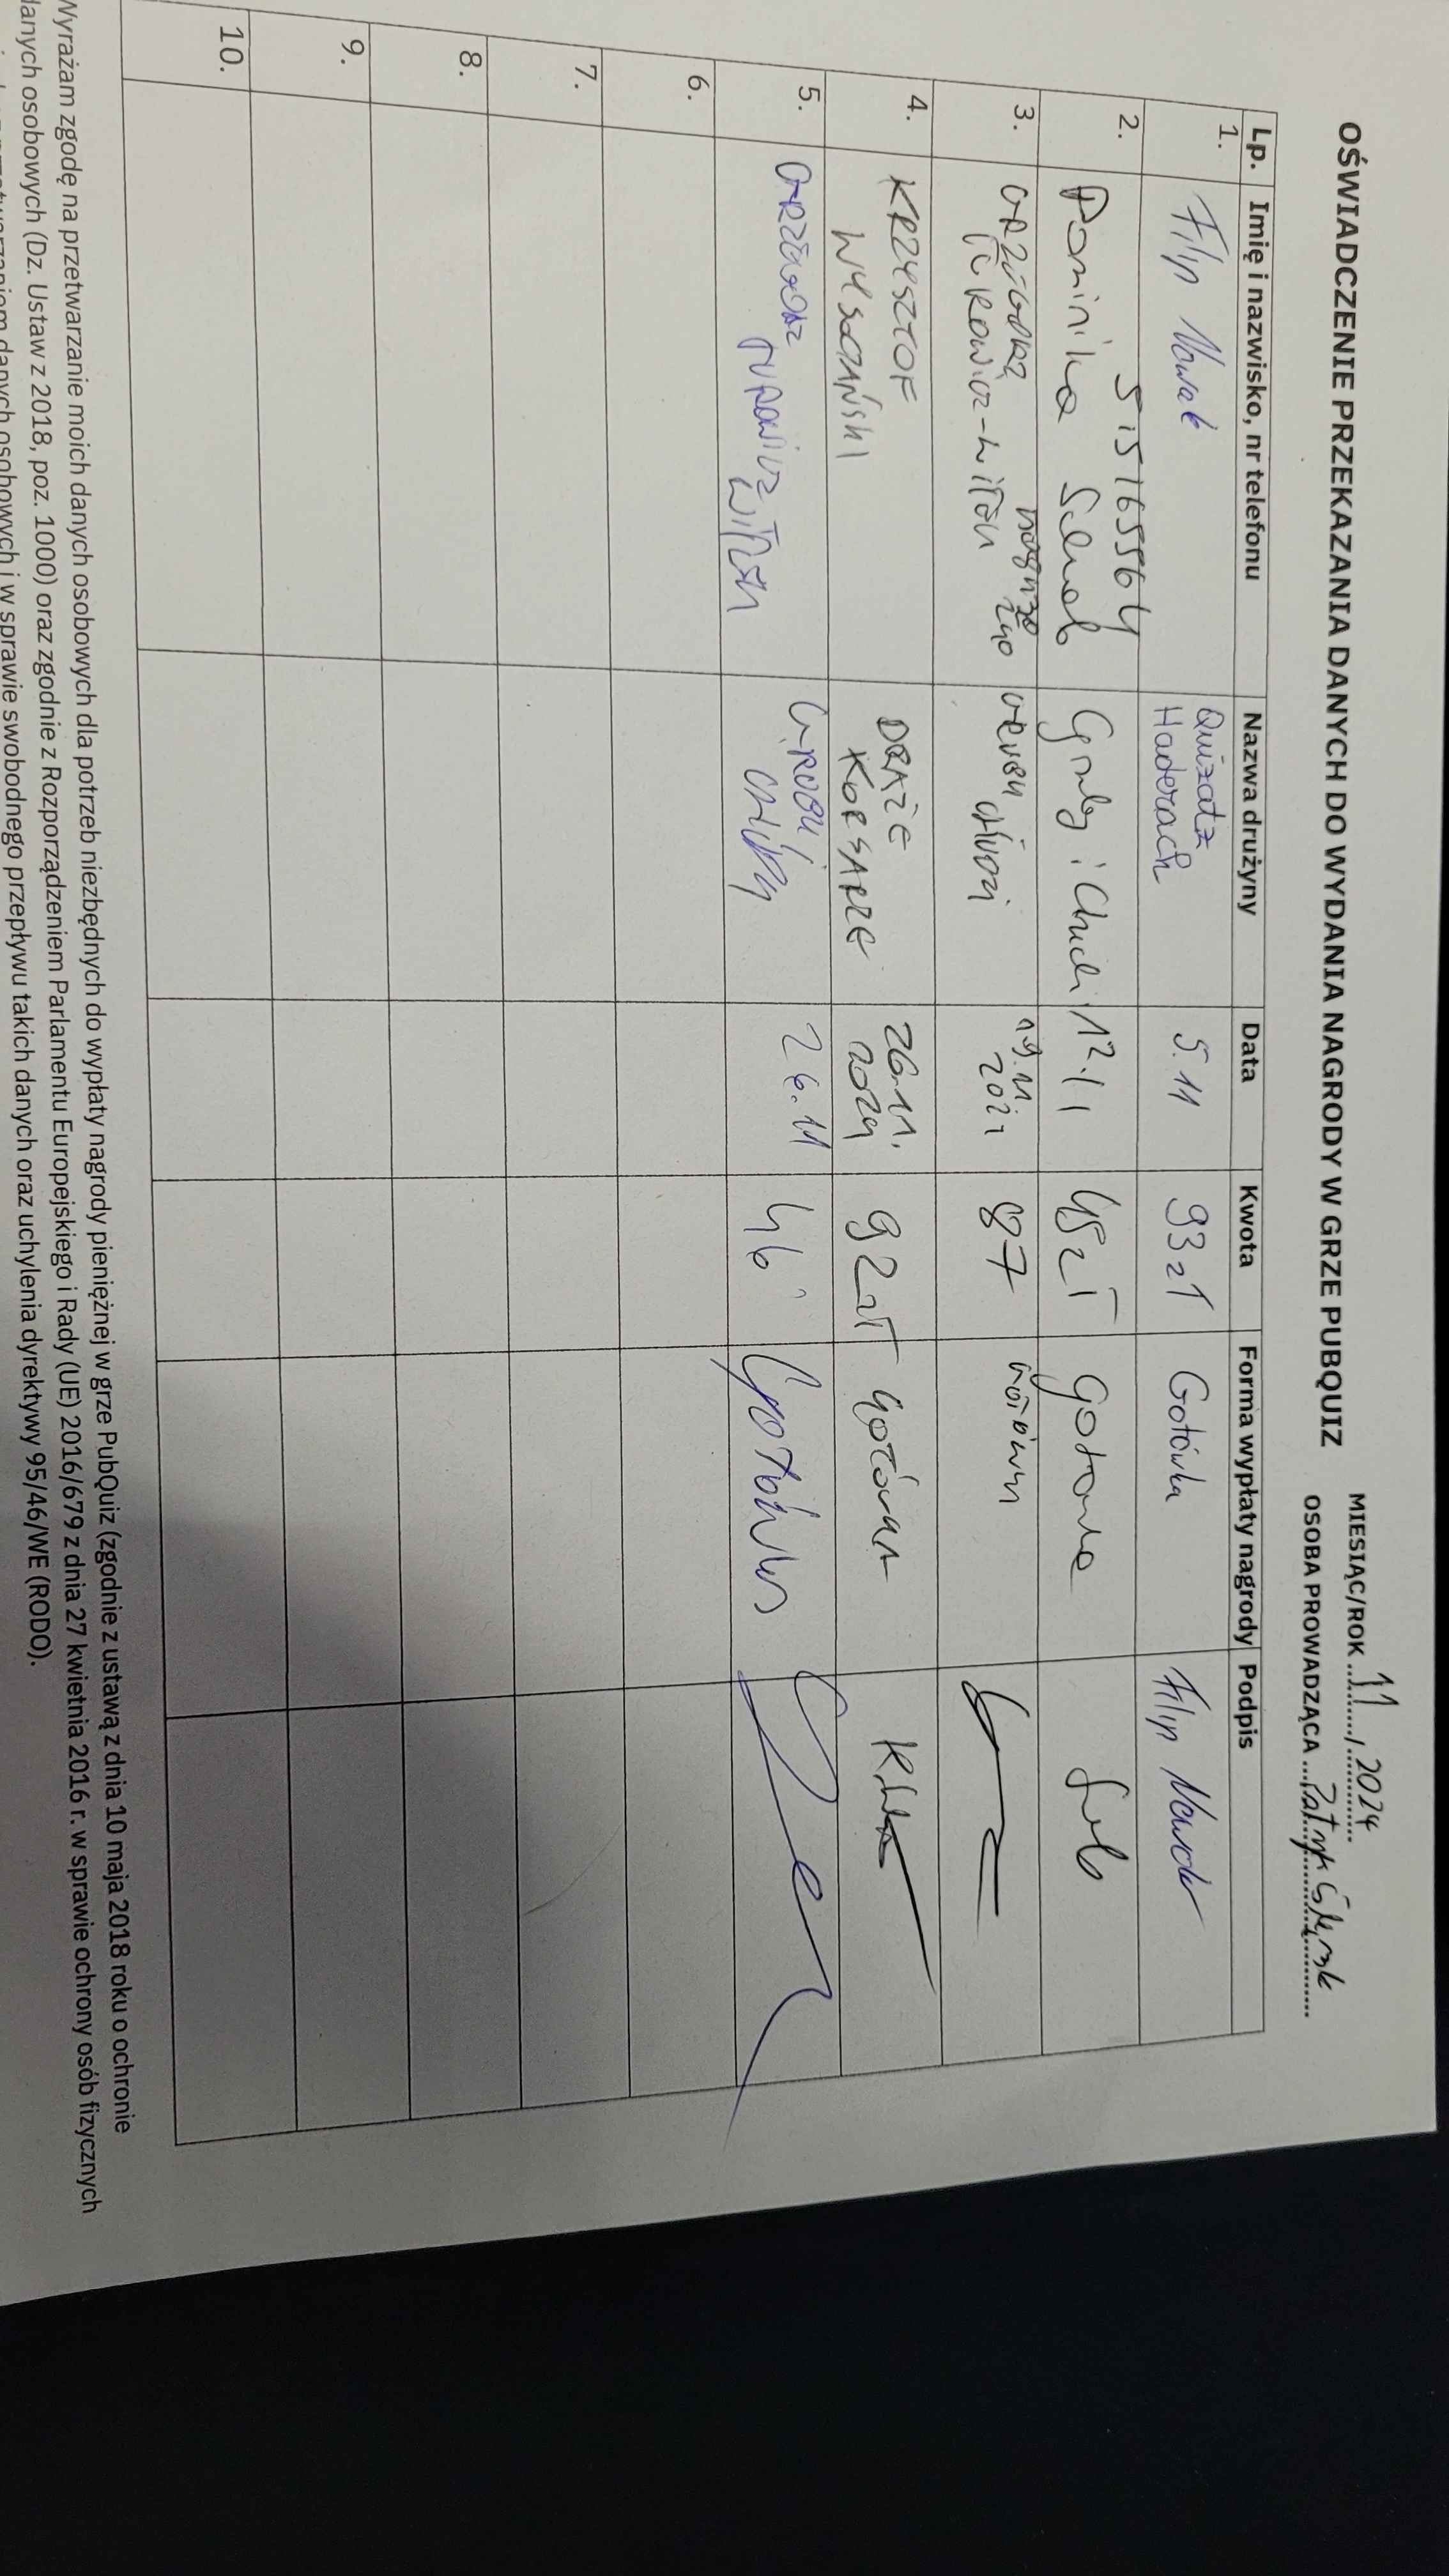 OŚWIADCZENIE PRZEKAZANIA DANYCH DO WYDANIA NAGRODY W GRZE PUBQUIZ
MIESIĄC/ROK 11 / 2024
OSOBA PROWADZĄCA Patryk
Lp. Imię i nazwisko, nr telefonu Nazwa drużyny Data Kwota Forma wypłaty nagrody Podpis
1. Filip Nowak Quizatz Haderach 5.11 93 zł Gotówka Filip Nowak
515165564
2. Dominika Gruby i Chudi 12.11 45zł Gotowka
3. 19.11. 87
4. KRZYSZTOF DRAŻE KORSARZE 26.11. 2024 92zł gotówka
WYSOCZAŃSKI
5. GRZEGORZ 26.11 46 Gotówka
6.
7.
8.
9.
10.
Wyrażam zgodę na przetwarzanie moich danych osobowych dla potrzeb niezbędnych do wypłaty nagrody pieniężnej w grze PubQuiz (zgodnie z ustawą z dnia 10 maja 2018 roku o ochronie
danych osobowych (Dz. Ustaw z 2018, poz. 1000) oraz zgodnie z Rozporządzeniem Parlamentu Europejskiego i Rady (UE) 2016/679 z dnia 27 kwietnia 2016 r. w sprawie ochrony osób fizycznych
przetwarzaniem danych osobowych i w sprawie swobodnego przepływu takich danych oraz uchylenia dyrektywy 95/46/WE (RODO).